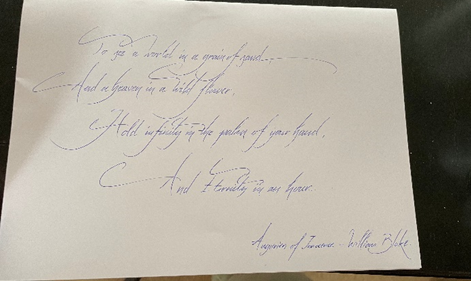 To see a world in a grain of sand
And a heaven in a wild flower.
Hold infinity in the palm of your hand,
And Eternity in an hour.
Auguries of Innocence - William Blake